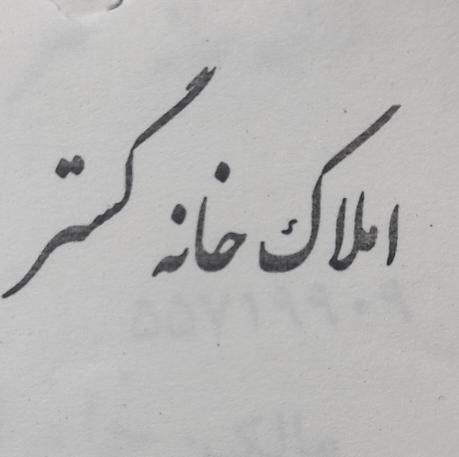 املاک خانه گستر